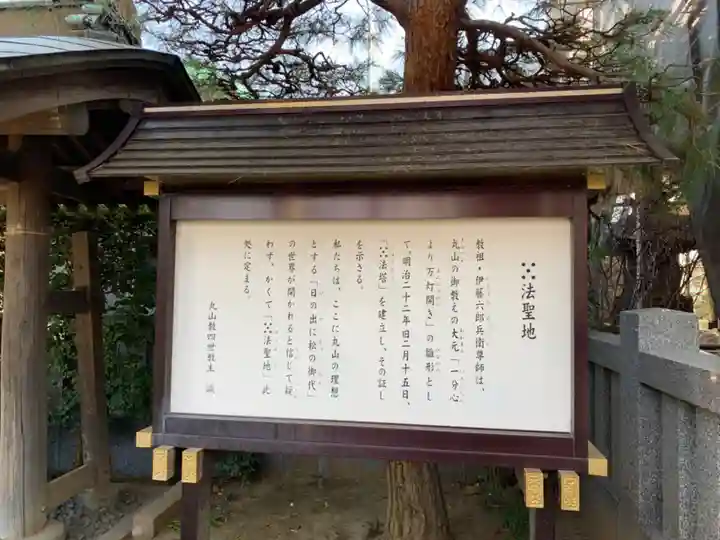 法聖地
教祖・伊藤六郎兵衛尊師は、
丸山の御教えの大元「一分心
より万灯開き」の雛形とし
て、明治二十二年旧二月十五日、
「法塔」を建立し、その証し
を示さる。
私たちは、ここに丸山の理想
とする「日の出に松の御代」
の世界が開かれると信じて疑
わず、かくて「法聖地」此
処に定まる。
丸山教四世教主 識